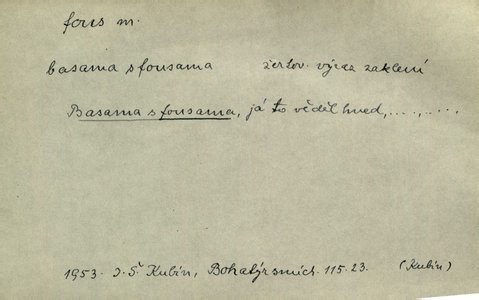 fous m.
basama s fousama žertov. výraz zaklení
Basama s fousama, já to věděl hned, ...., .....
1953. J. Š. Kubín, Bohatýr. smích. 115. 23. (Kubín)